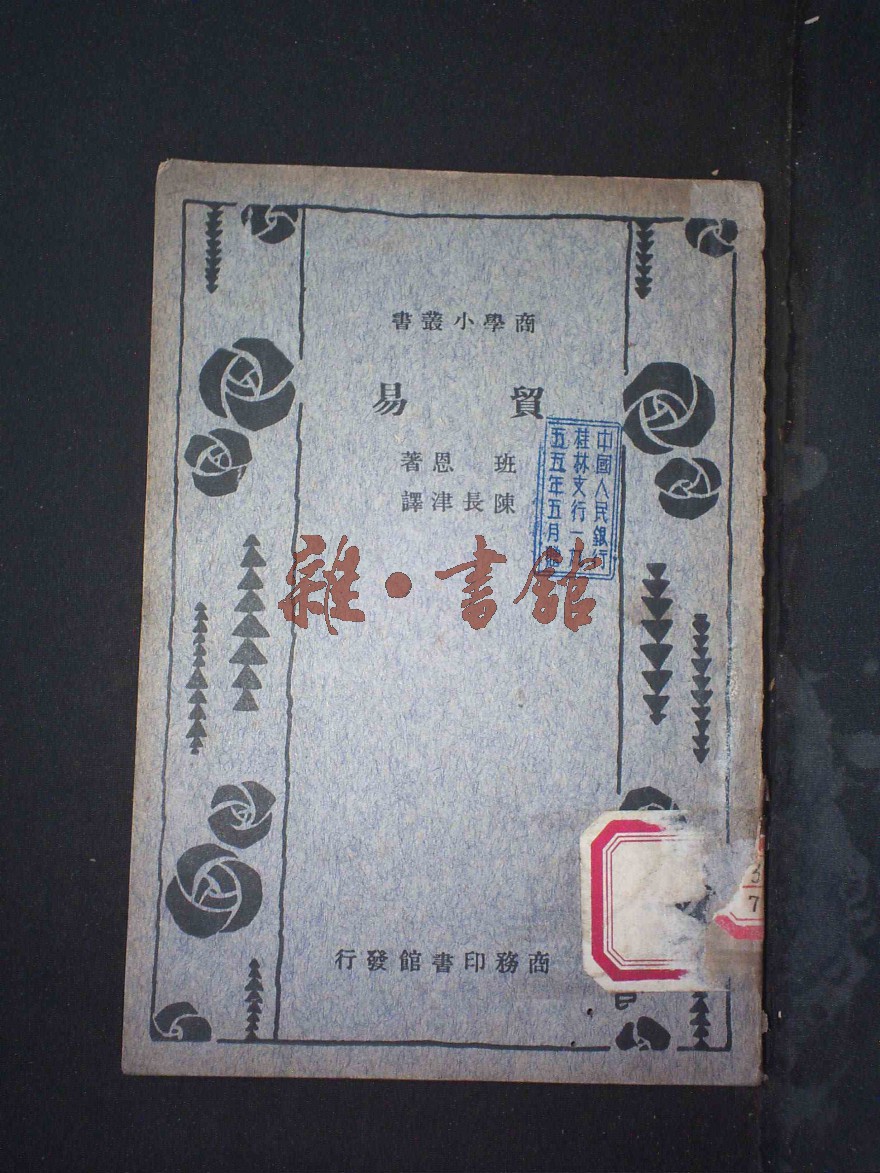 商學小叢書
貿易
班恩著
陳長津譯
中國人民銀行
桂林支行一九
五五年五月
雜·書館
商務印書館發行
3
7